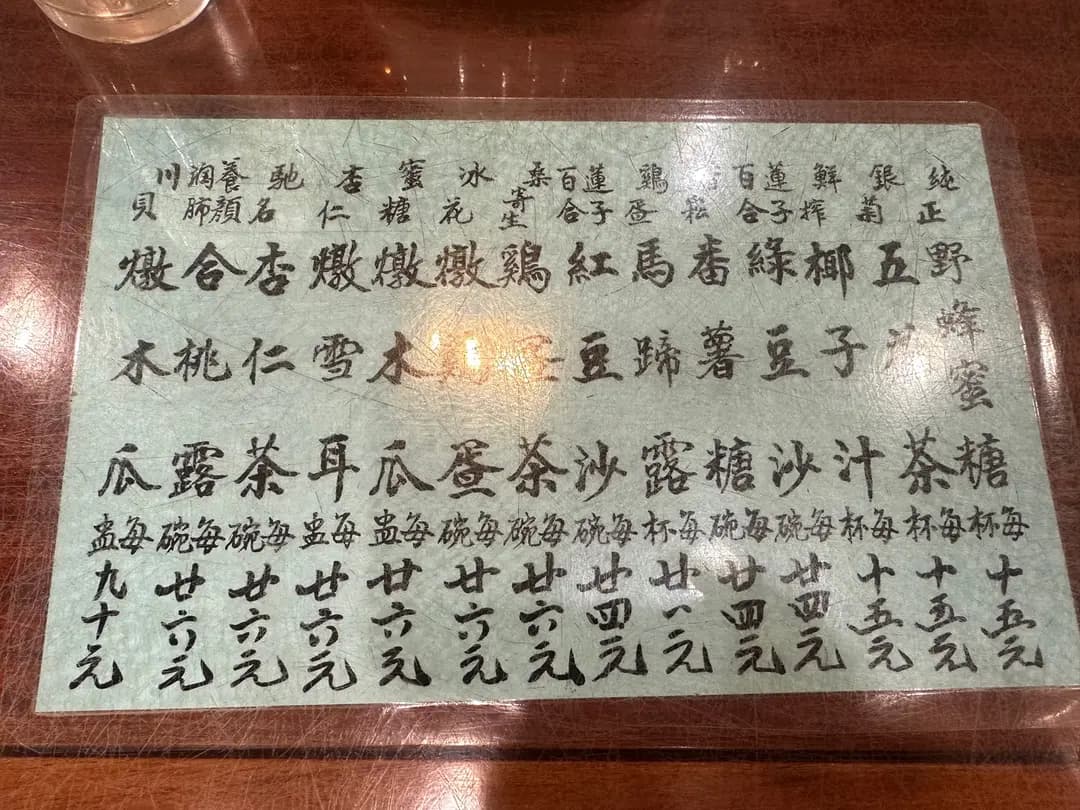 純正野蜂蜜糖每杯十五元
銀菊五茶每杯十五元
鮮搾椰子汁每杯十五元
蓮子百合綠豆沙每碗廿四元
番薯糖每碗廿四元
鷄蛋馬蹄露每杯廿一元
蓮子百合紅豆沙每碗廿四元
桑寄生鷄蛋茶每碗廿六元
冰花燉鷄蛋每碗廿六元
蜜糖燉木瓜每盅廿六元
杏仁燉雪耳每盅廿六元
馳名杏仁茶每碗廿六元
養顏潤肺合桃露每碗廿六元
川貝燉木瓜每盅九十元